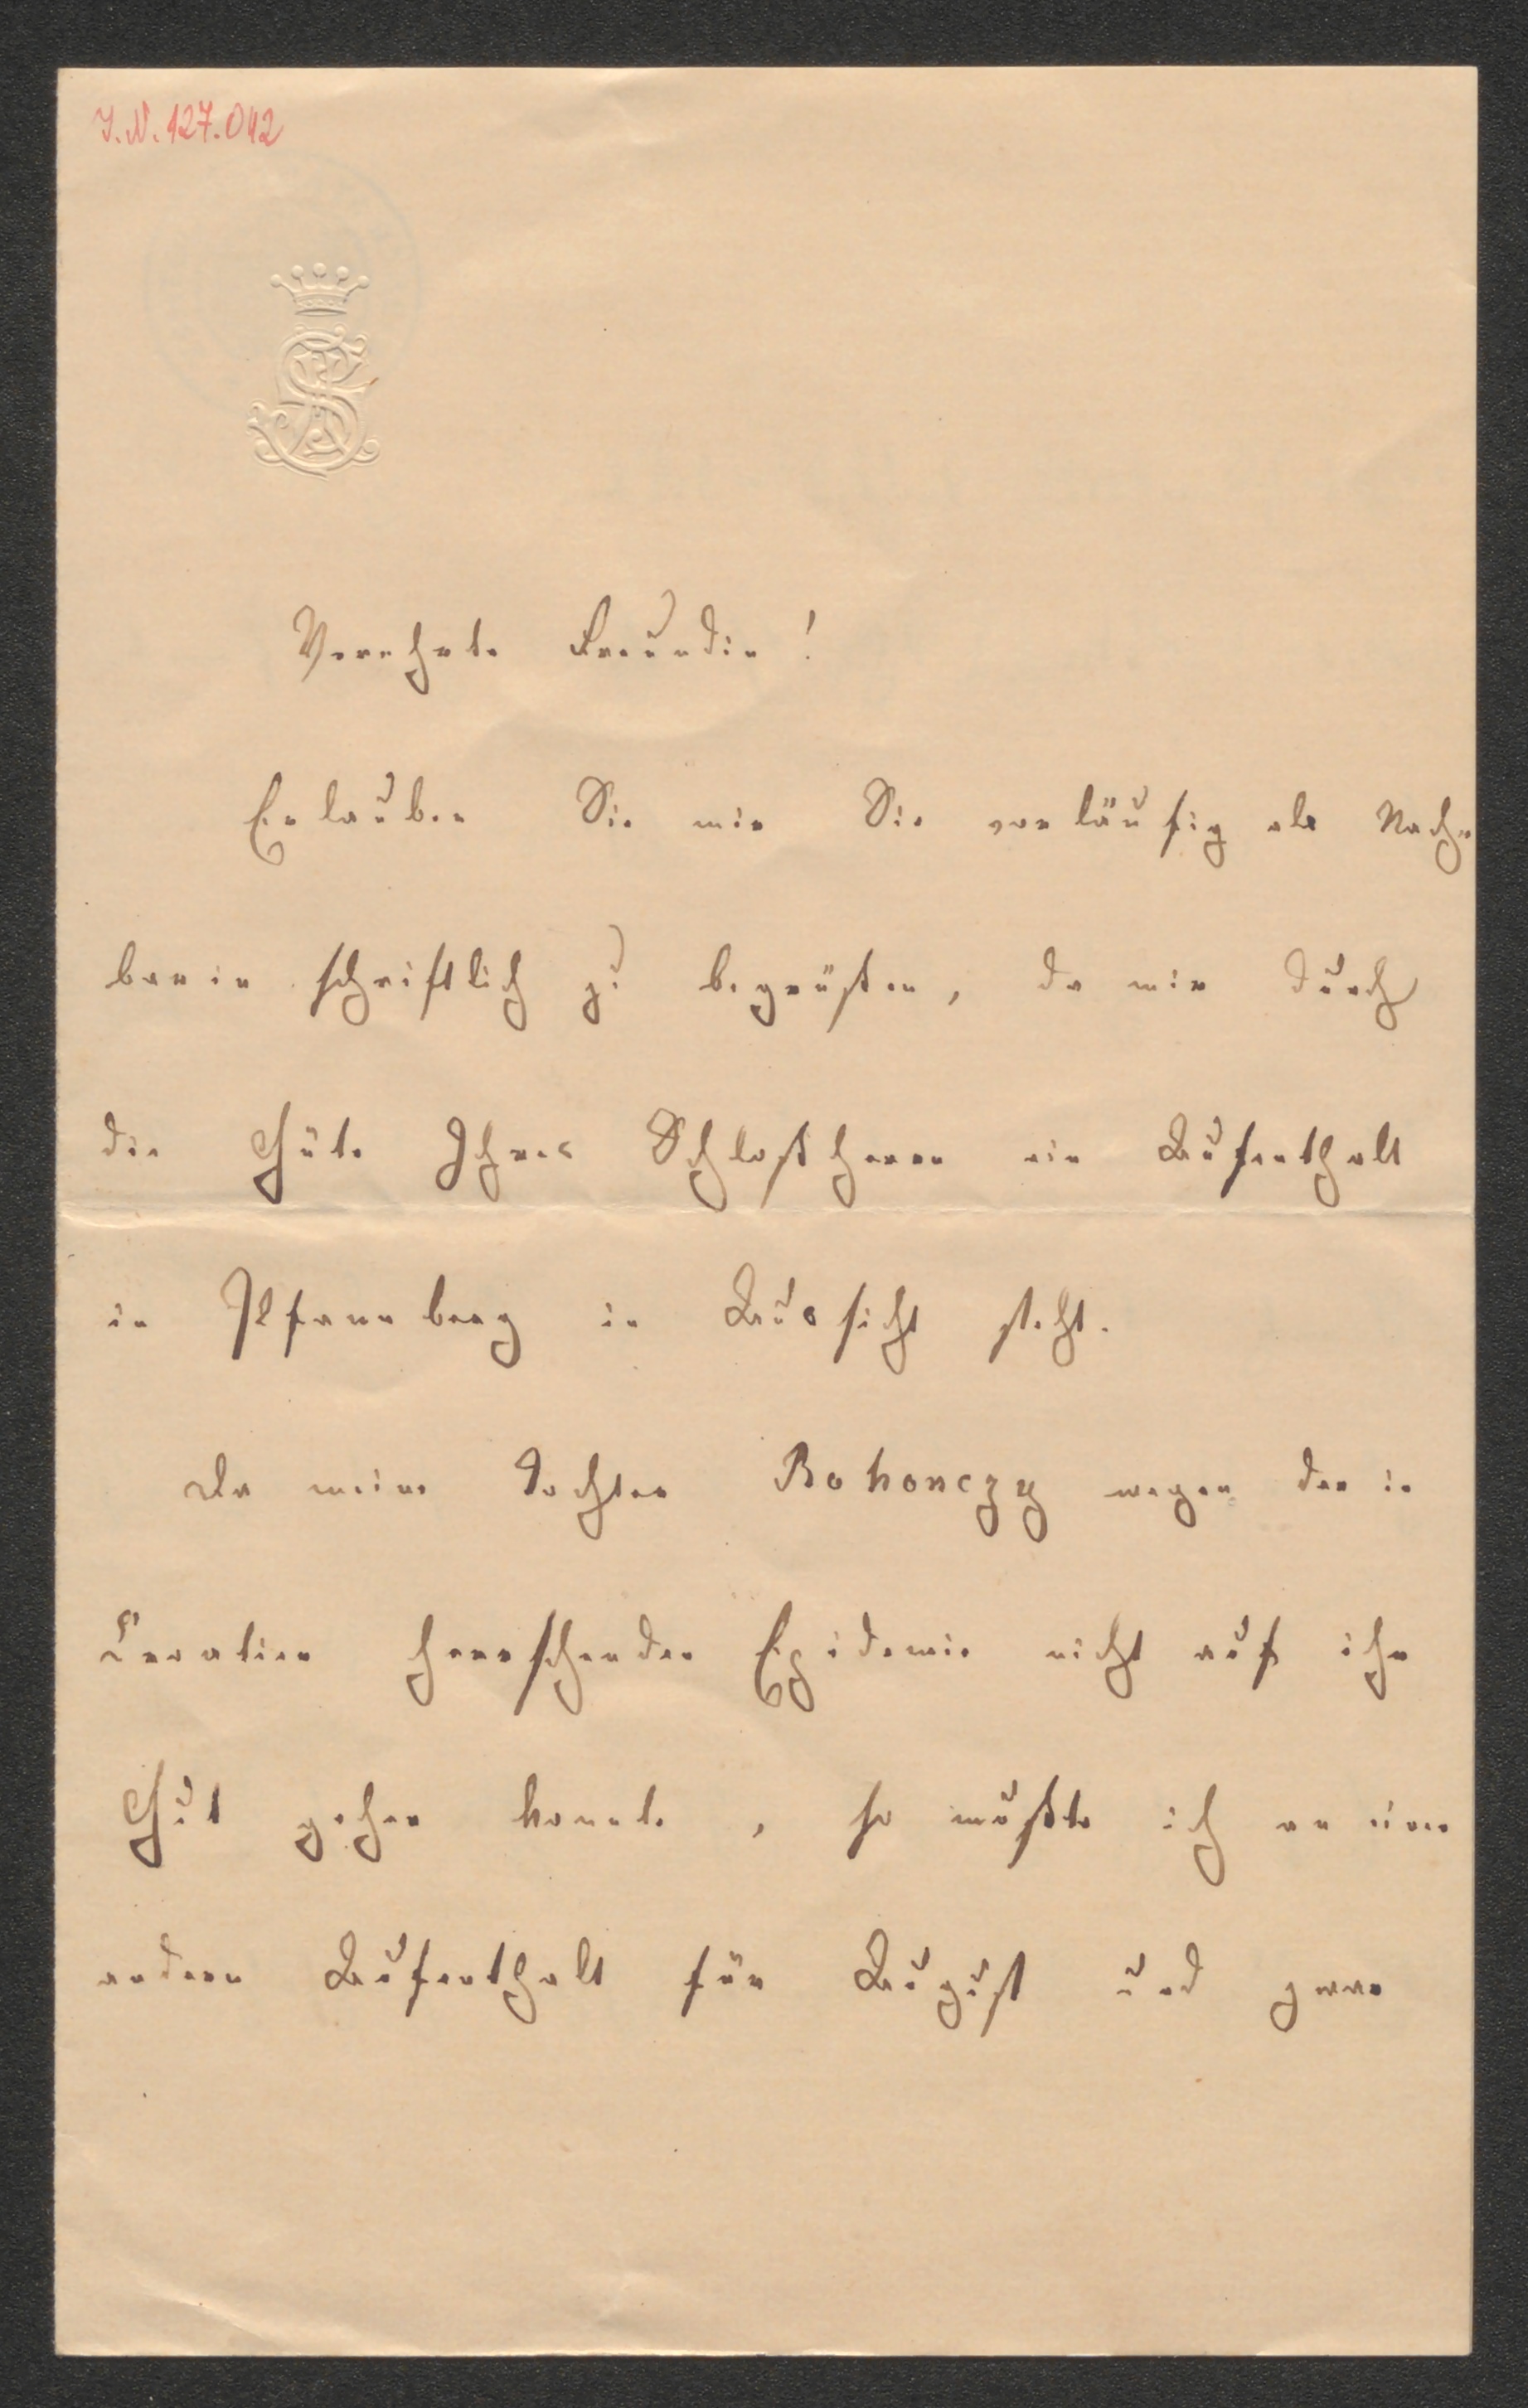 I.N. 127.042
Verehrte Freundin!
Erlauben Sie mir Sie vorläufig als Nach-
barin schriftlich zu begrüßen, da mir durch
die Güte Ihres Schloßherrn ein Aufenthalt
in Pfannberg in Aussicht steht.
Da meine Tochter Bohonczy wegen der in
Croatien herrschenden Epidemie nicht auf ihr
Gut gehen konnte, so mußte ich an einen
andern Aufenthalt für August und